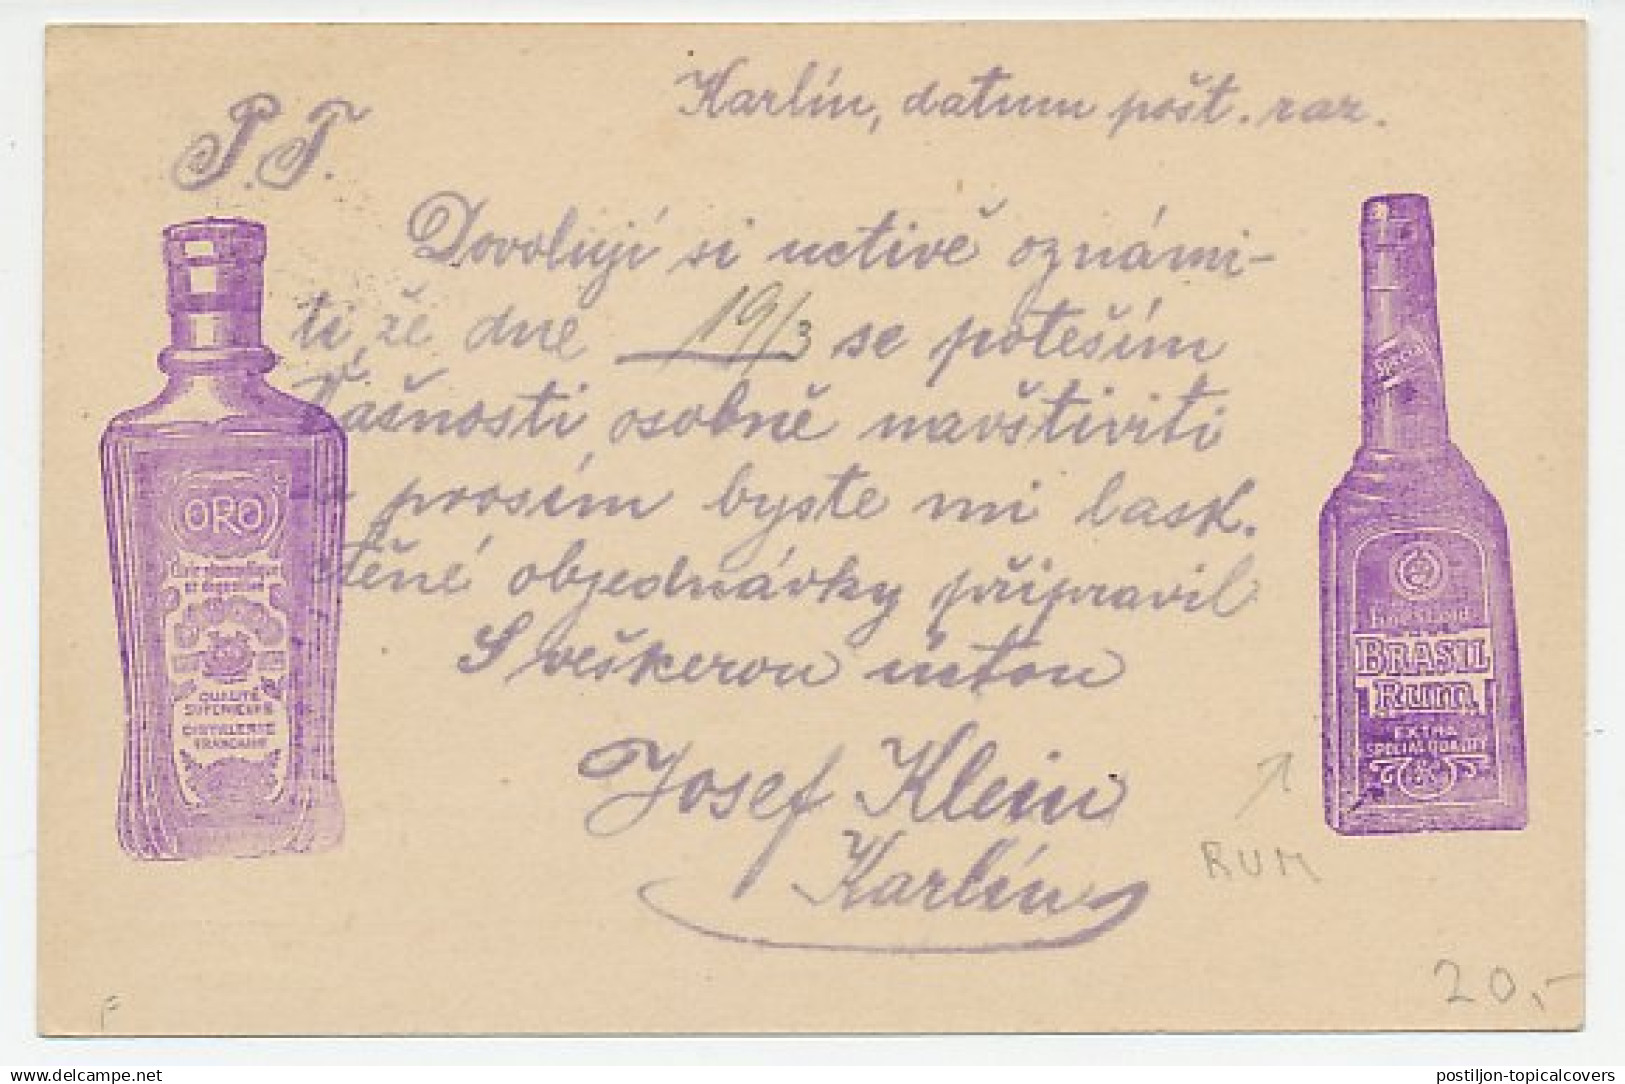 Karlín, datum pošt. raz.
P. T.
Dovoluji si uctivě oznámi-
ti že dne 19/3 se potěším
Vašnosti osobně navštíviti
a prosím byste mi lask.
ctěné objednávky připravil
S veškerou úctou
Josef Klein
Karlín
ORO
QUALITÉ
SUPÉRIEURE
DISTILLERIE
FRANÇAISE
Special
BRASIL
Rum
EXTRA
SPECIAL QUALITY
RUM
20,-
F
delcampe.net
postiljon-topicalcovers